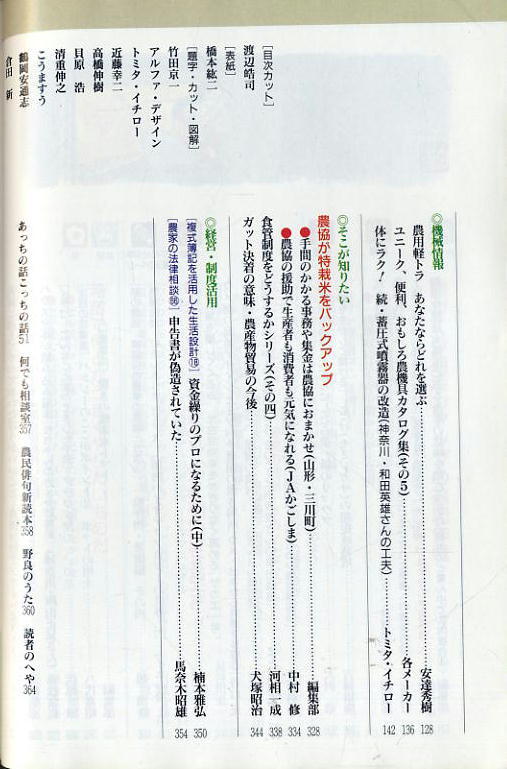 ◎機械情報
農用軽トラ あなたならどれを選ぶ……安達秀樹 128
ユニーク、便利、おもしろ農機具カタログ集(その5)……各メーカー 136
体にラク! 続・蓄圧式噴霧器の改造(神奈川・和田英雄さんの工夫)……トミタ・イチロー 142
◎そこが知りたい
農協が特栽米をバックアップ
●手間のかかる事務や集金は農協におまかせ(山形・三川町)……編集部 328
●農協の援助で生産者も消費者も元気になれる(JAかごしま)……中村 修 334
食管制度をどうするかシリーズ(その四)……河相一成 338
ガット決着の意味・農産物貿易の今後……犬塚昭治 344
◎経営・制度活用
[複式簿記を活用した生活設計⑱]資金繰りのプロになるために(中)……楠本雅弘 350
[農家の法律相談]申告書が偽造されていた……馬奈木昭雄 354
あっちの話こっちの話51 何でも相談室357 農民俳句新読本358 野良のうた360 読者のへや364
[目次カット]
渡辺皓司
[表紙]
橋本紘二
[題字・カット・図解]
竹田京一
アルファ・デザイン
トミタ・イチロー
近藤幸二
高橋伸樹
貝原 浩
清重伸之
こうますう
鶴岡安通志
倉田 新